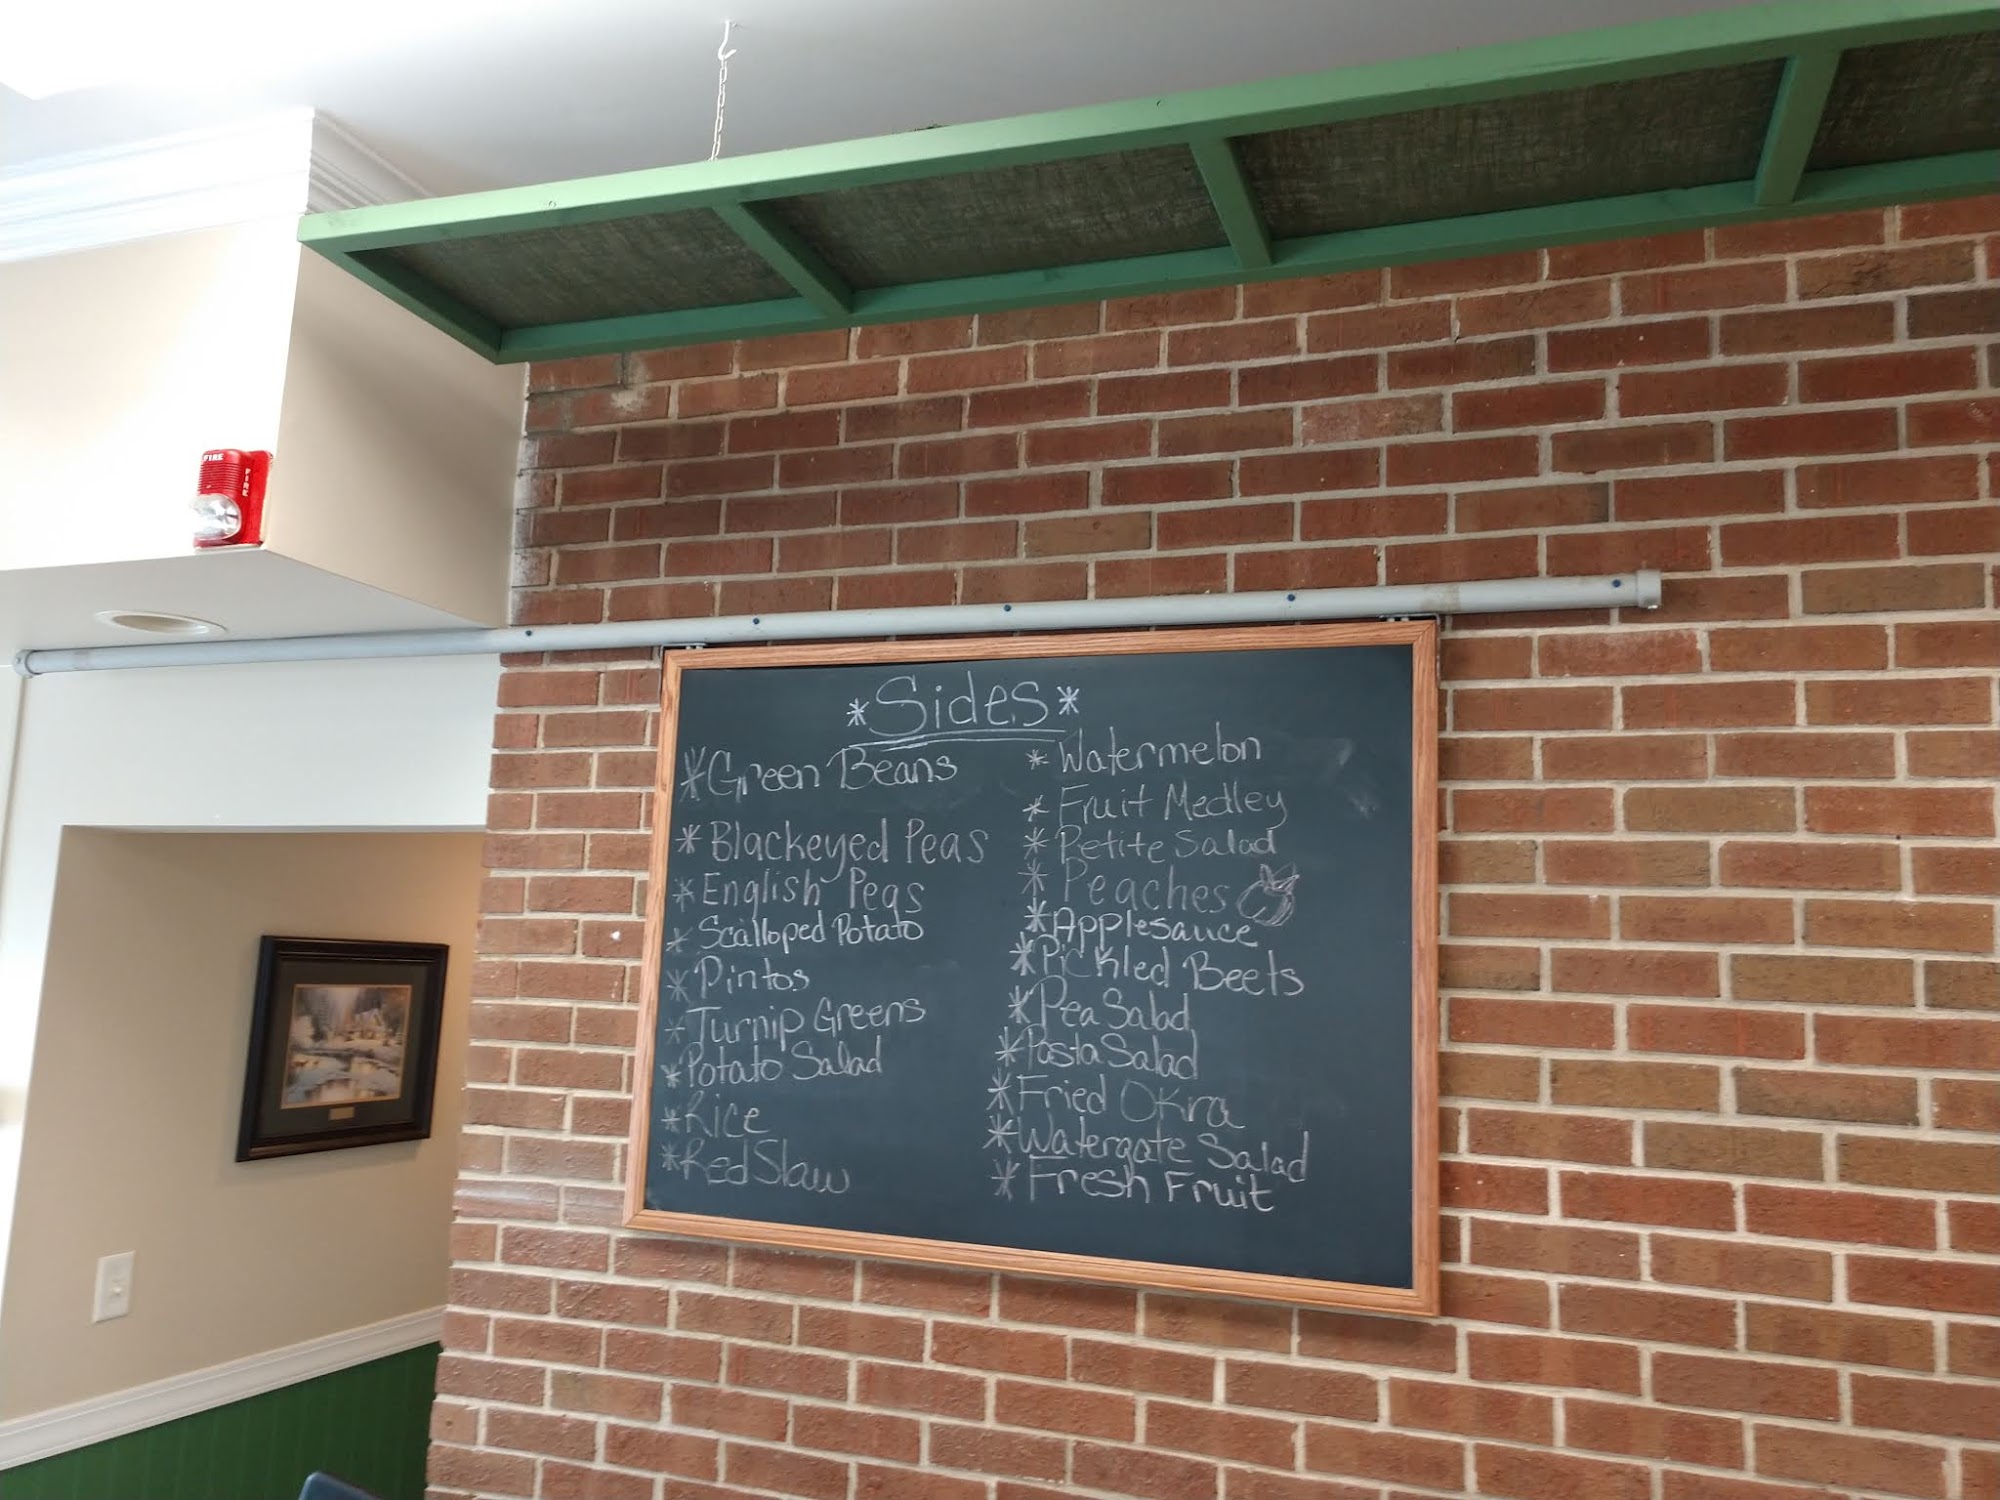 FIRE
FIRE
*Sides*
*Green Beans
*Blackeyed Peas
*English Peas
*Scalloped Potato
*Pintos
*Turnip Greens
*Potato Salad
*Rice
*Red Slaw
*Watermelon
*Fruit Medley
*Petite Salad
*Peaches
*Applesauce
*Pickled Beets
*Pea Salad
*Pasta Salad
*Fried Okra
*Watergate Salad
*Fresh Fruit